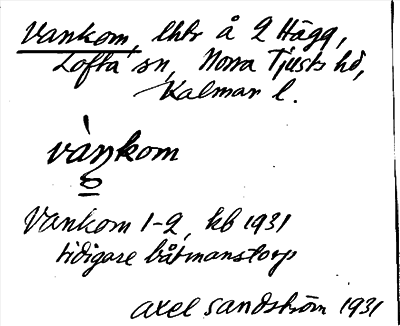 Vankom, lhtr å 2 Hägg,
Lofta sn, Norra Tjusts hd,
Kalmar l.
vànkom
Vankom 1-2, kb 1931
tidigare båtmanstorp
Axel Sandström 1931